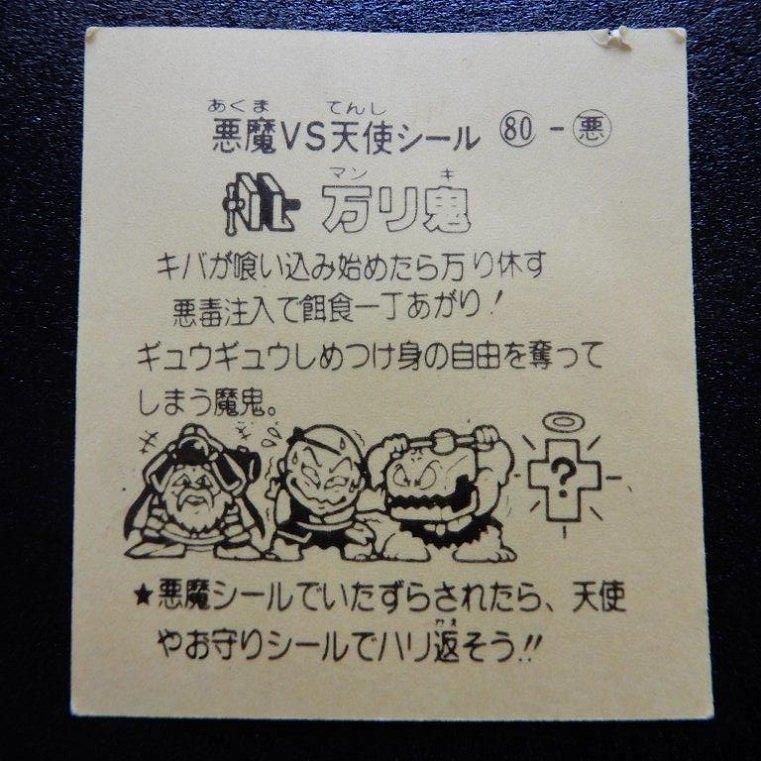 あくま てんし
悪魔VS天使シール 80-悪
マン キ
万リ鬼
キバが喰い込み始めたら万り休す
悪毒注入で餌食一丁あがり!
ギュウギュウしめつけ身の自由を奪って
しまう魔鬼。
?
★悪魔シールでいたずらされたら、天使
かえ
やお守りシールでハリ返そう!!